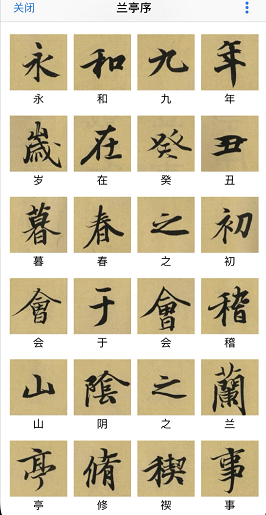 关闭 兰亭序
永 和 九 年
永 和 九 年
歲 在 癸 丑
岁 在 癸 丑
暮 春 之 初
暮 春 之 初
會 于 會 稽
会 于 会 稽
山 陰 之 蘭
山 阴 之 兰
亭 脩 稧 事
亭 修 禊 事